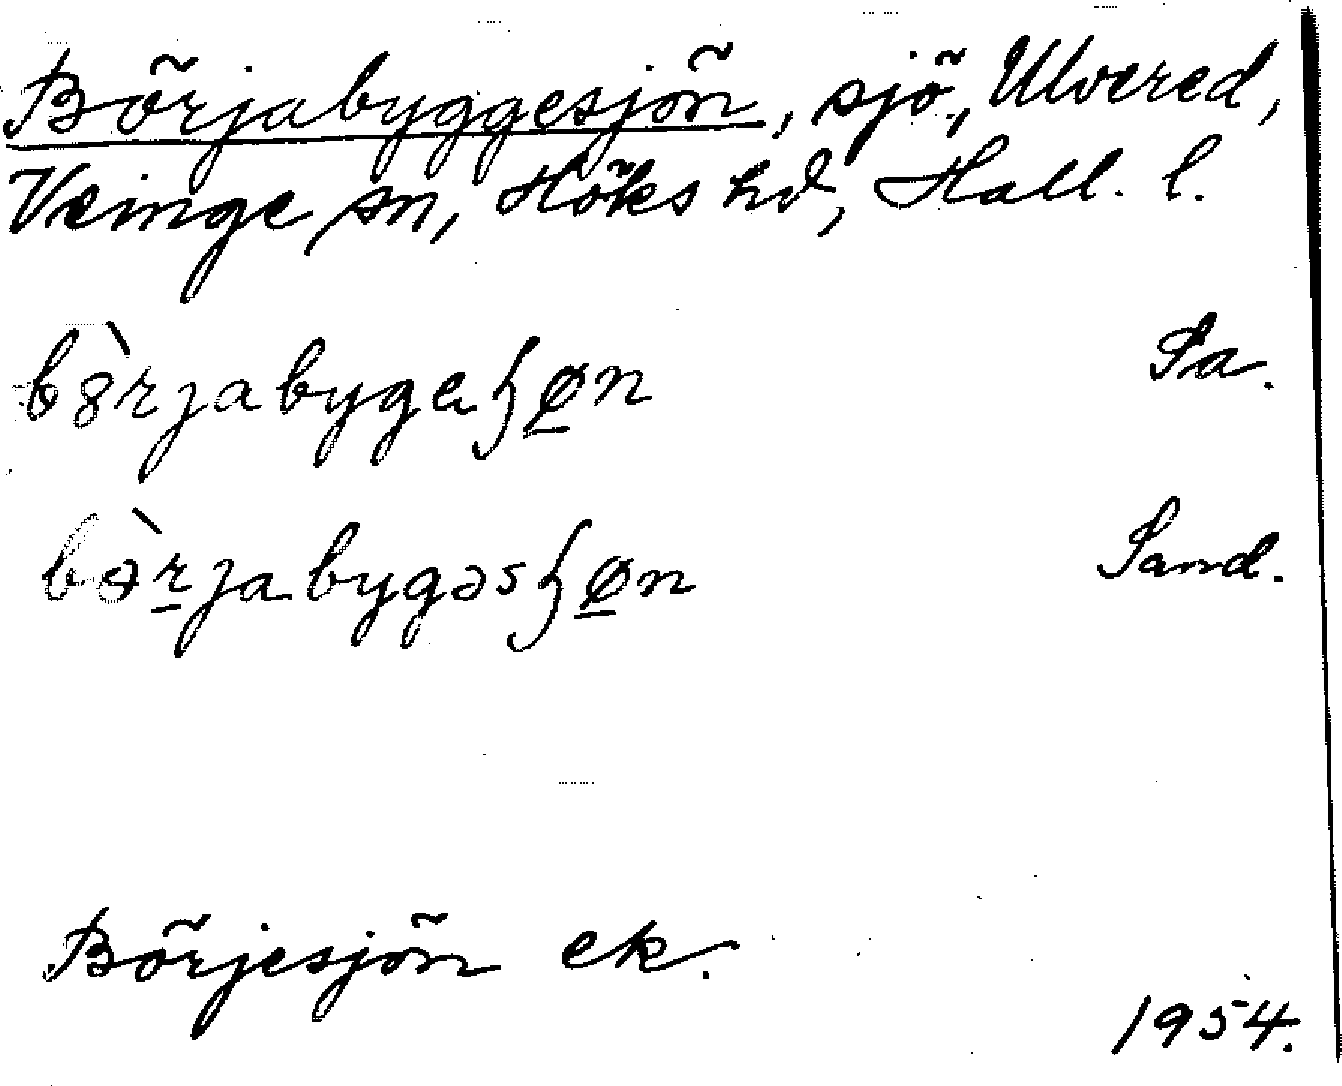 Börjabyggesjön, sjö, Ulvered,
Veinge sn, Höks hd, Hall. l.
bò̈rjabygeɧø̲n Sa.
bə̀r̲jabygəsɧø̲n Sand.
Börjesjön ek.
1954.